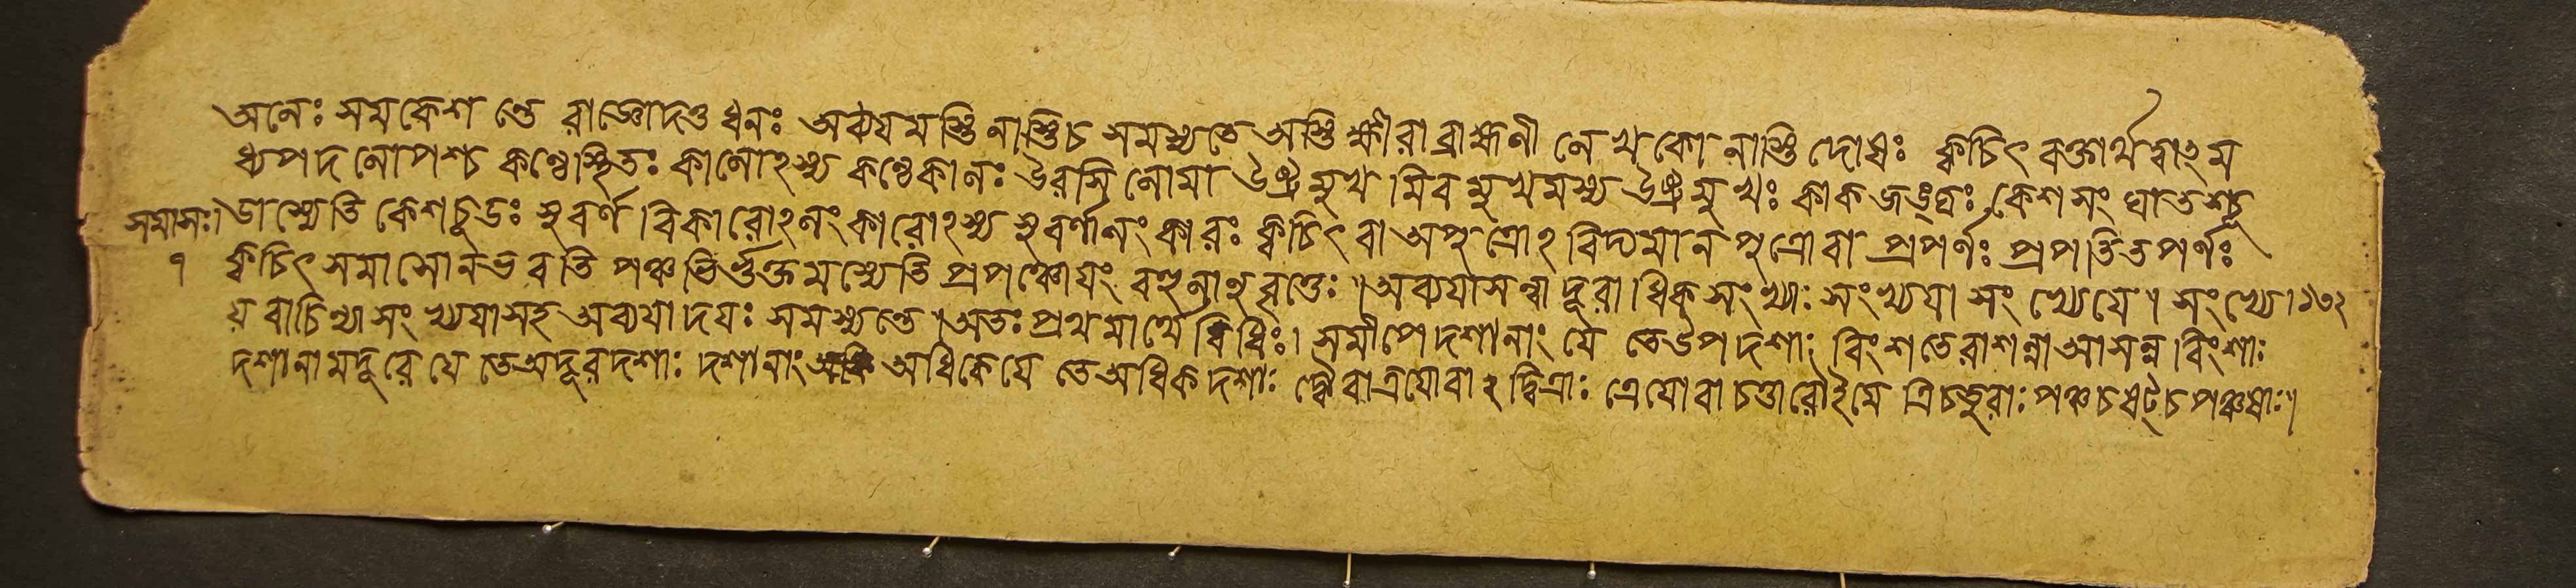 অনেঃ সমকেশ ন্তে রাজ্ঞোদণ্ড ধনঃ অব্যযমস্তি নাস্তিচ সমস্যতে অস্তি ক্ষীরা ব্রাহ্মনী লেখকো নাস্তি দোষঃ ক্বচিৎ বক্তার্থত্বাৎ ম
ধ্যপদলোপশ্চ কণ্ঠেস্থিতঃ কালোঽস্য কণ্ঠেকালঃ উরসি লোমা উষ্ট্রমুখমিব মুখমস্য উষ্ট্রমুখঃ কাকজঙ্ঘঃ কেশসংঘাতশ্চূ
সমাসঃ।
ডাস্যেতি কেশচূডঃ সুবর্ণবিকারোঽলংকারোঽস্য সুবর্ণালংকারঃ ক্বচিৎ বা অপুত্রোঽবিদ্যমান পুত্রোবা প্রপর্ণঃ প্রপতিতপর্ণঃ
৭
ক্বচিৎ সমাসোনভবতি পঞ্চভির্ভুক্তমস্যেতি প্রপঞ্চোযং বহুলানুবৃত্তেঃ ॥ অব্যযাসন্নাদূরাধিক সংখ্যাঃ সংখ্যযা সংখ্যেযে। সংখ্যে। ১৩২
য়বাচিন্যা সংখ্যযাসহ অব্যযাদযঃ সমস্যন্তে। অতঃ প্রথমার্থে বিধিঃ। সমীপে দশানাং যে তেউপদশাঃ বিংশতেরাশন্না আসন্ন বিংশাঃ
দশানামদূরে যে তেঅদূরদশাঃ দশানাং অধিকেযে তেঅধিকদশাঃ দ্বৌবা ত্রযোবা ২ দ্বিত্রাঃ ত্রেযোবা চত্তারোইমে ত্রিচতুরাঃ পঞ্চচষট্চ পঞ্চষাঃ।